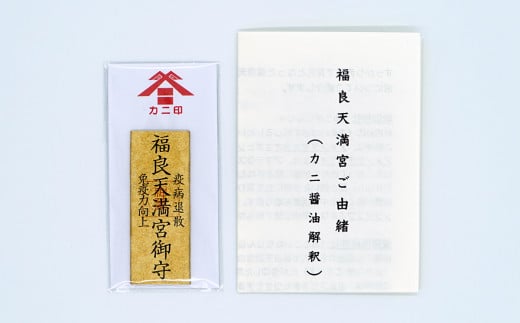 カニ印
福良天満宮御守
疫病退散
免疫力向上
福良天満宮ご由緒
（カニ醤油解釈）